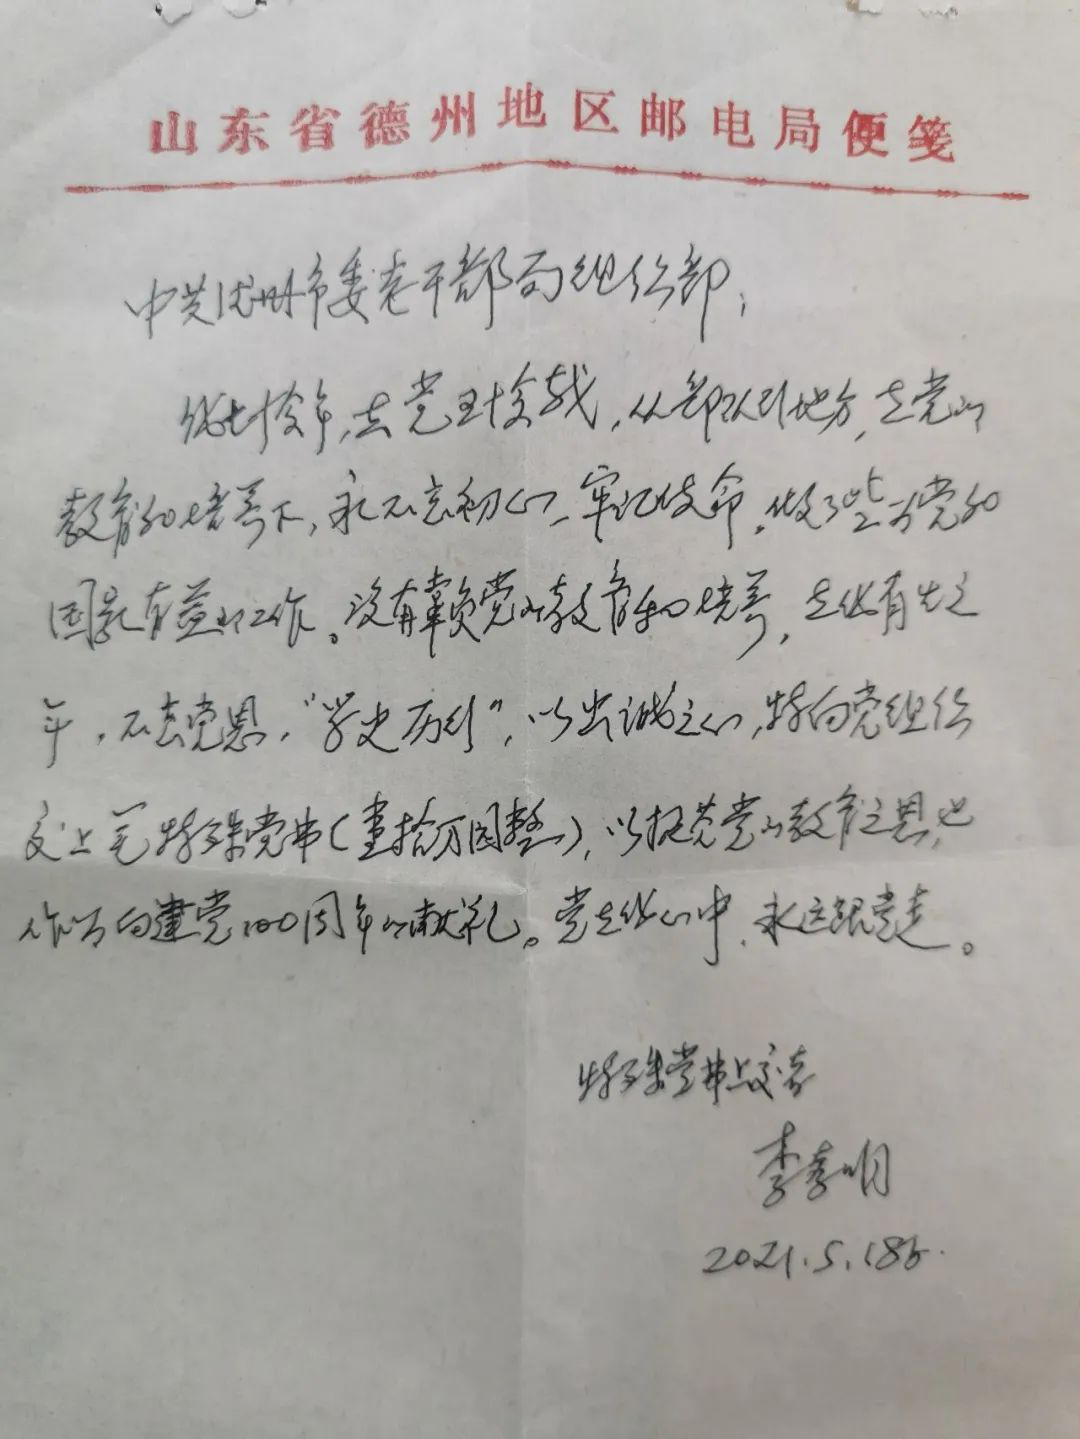 山东省德州地区邮电局便笺
中共德州市委老干部局组织部：
党五十余载，从部队到地方，在党的
教育和培养下，永不忘初心，牢记使命，做了些为党和
国家有益的工作。没有辜负党的教育和培养，在有生之
年，不忘党恩，"学史力行"，以出诚之心，特向党组织
交上笔特殊党费(壹拾万园整)，以报答党的教育之恩，也
作为向建党100周年的献礼。党在我心中，永远跟党走。
特殊党费上交者
李明
2021.5.18